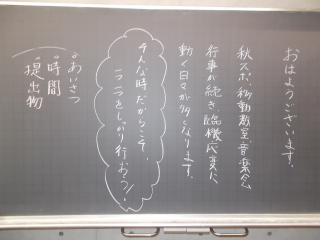 おはようございます。
秋スポ、移動教室、音楽会
行事が続き、臨機応変に
動く日々が多くなります。
そんな時だからこそ、
一つ一つをしっかり行おう!
あいさつ
時間
提出物